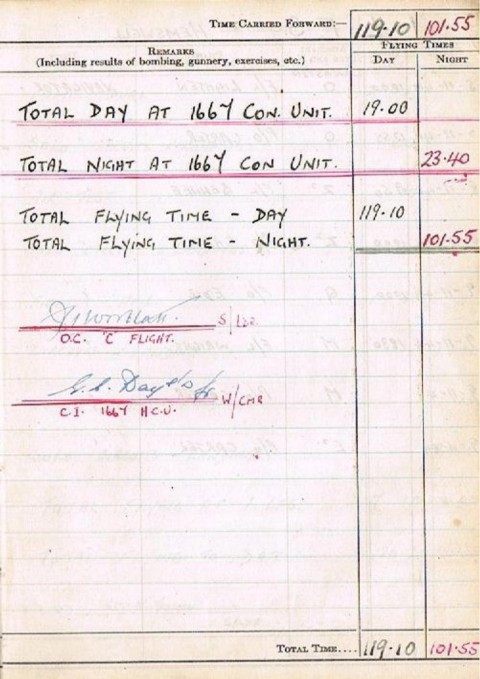 TIME CARRIED FORWARD:— 119.10 101.55
REMARKS FLYING TIMES
(Including results of bombing, gunnery, exercises, etc.) DAY NIGHT
TOTAL DAY AT 1667 CON. UNIT. 19.00
TOTAL NIGHT AT 1667 CON UNIT. 23.40
TOTAL FLYING TIME - DAY 119.10
TOTAL FLYING TIME - NIGHT. 101.55
S/LDR
O.C. "C" FLIGHT.
W/CMR
C.I. 1667 H.C.U.
TOTAL TIME.... 119.10 101.55